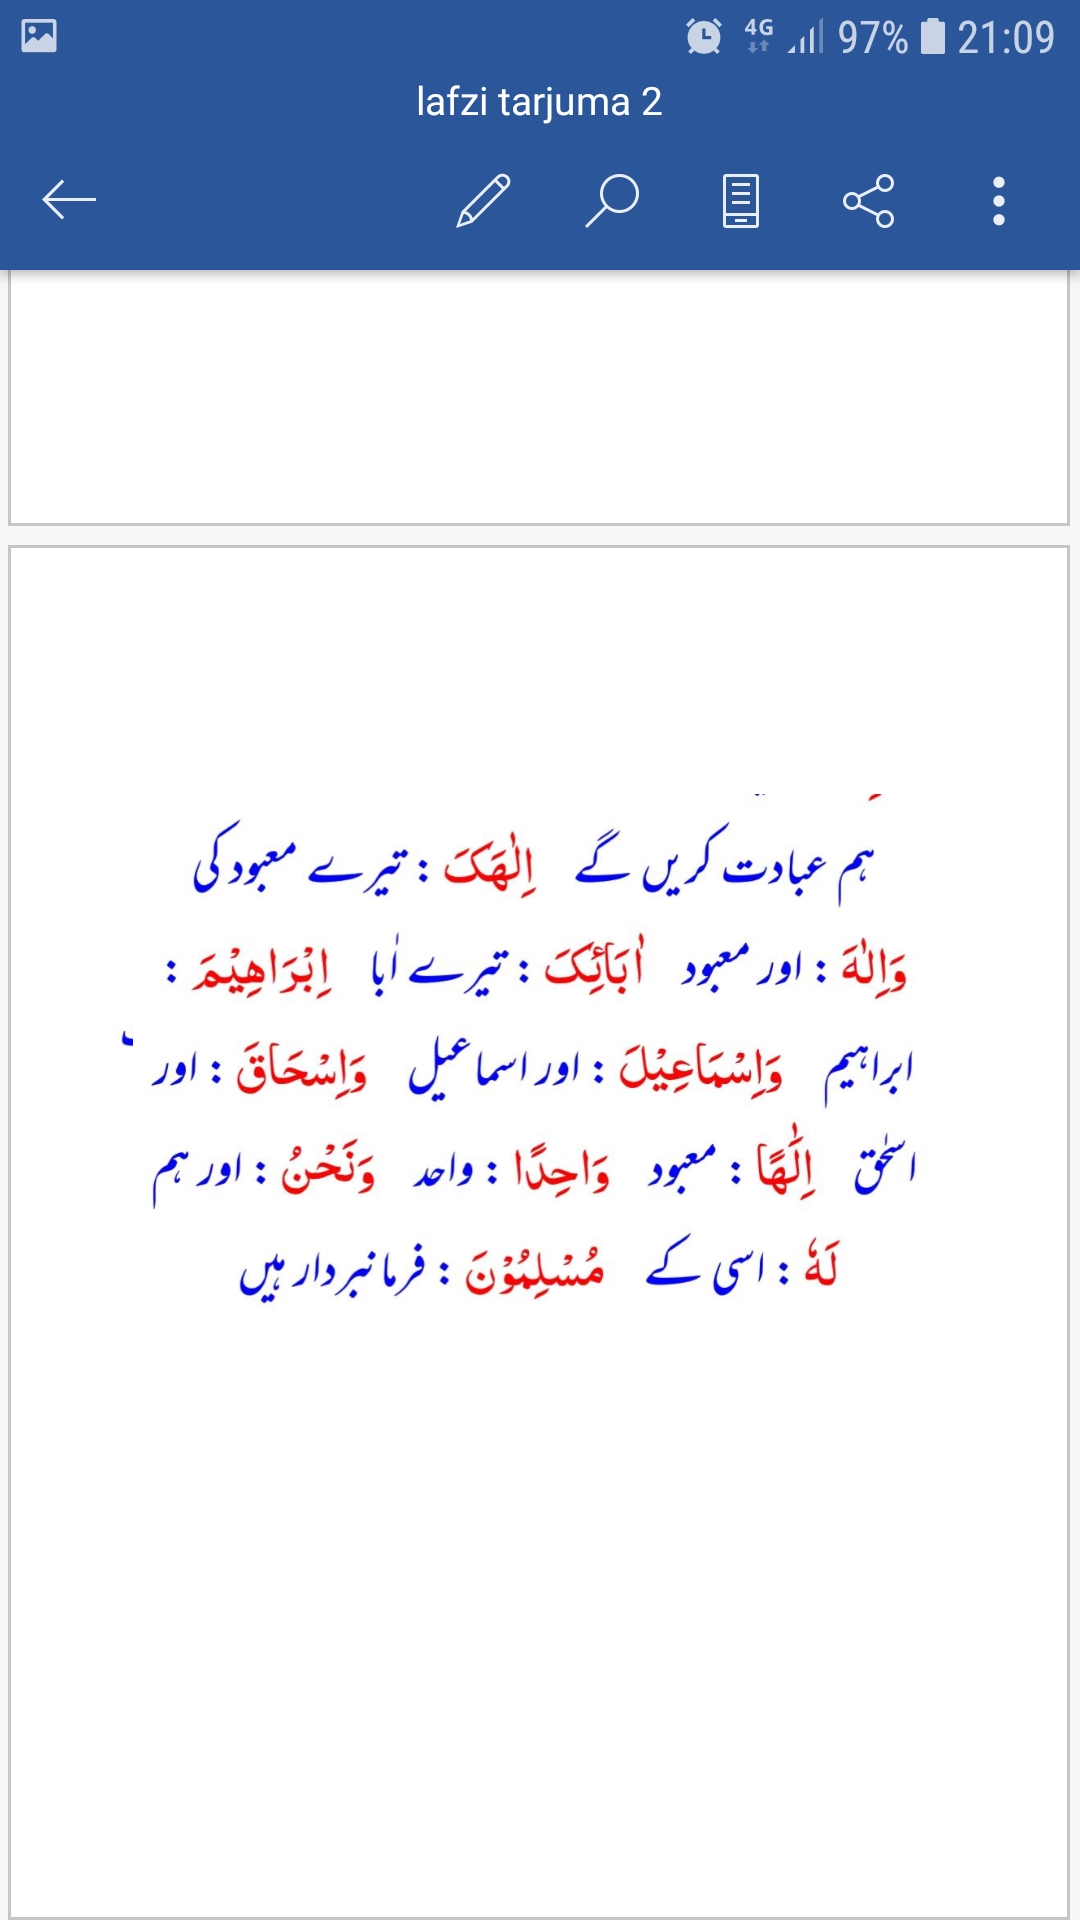 4G 97% 21:09
lafzi tarjuma 2
ہم عبادت کریں گے اِلٰهَکَ : تیرے معبود کی
وَاِلٰهَ : اور معبود اٰبَآئِکَ : تیرے اٰبا اِبْرَاهِيْمَ :
ابراہیم وَاِسْمَاعِيْلَ : اور اسماعیل وَاِسْحَاقَ : اور
اسحٰق اِلٰهًا : معبود وَاحِدًا : واحد وَنَحْنُ : اور ہم
لَهٗ : اسی کے مُسْلِمُوْنَ : فرمانبردار ہیں